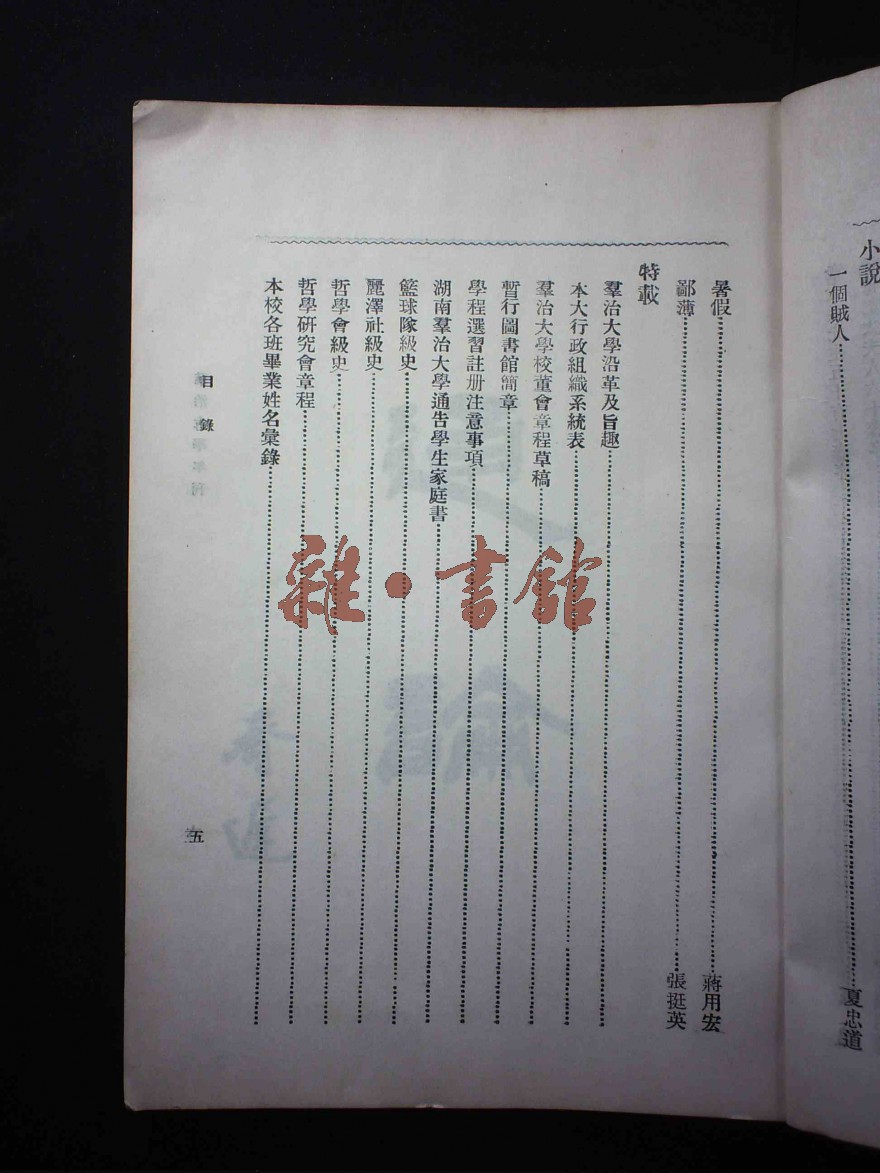 小說
一個賊人……夏忠道
暑假……蔣用宏
鄙薄……張挺英
特載
羣治大學沿革及旨趣
本大行政組織系統表
羣治大學校董會章程草稿
暫行圖書館簡章
學程選習註册注意事項
湖南羣治大學通告學生家庭書
籃球隊級史
麗澤社級史
哲學會級史
哲學研究會章程
本校各班畢業姓名彙錄
目錄
五
雜·書館